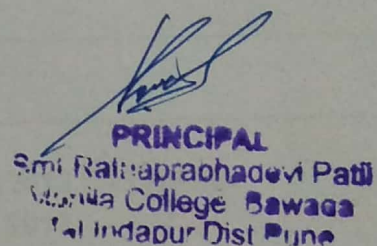 PRINCIPAL
Smt Ratnaprabhadevi Patil
Mahila College Bawada
Tal Indapur Dist Pune